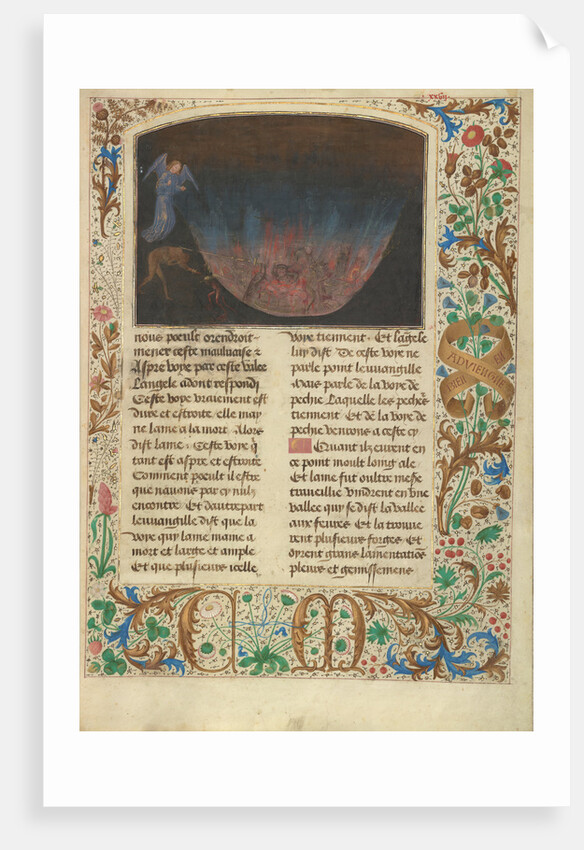 xxviij
nous poeult orendroit
mener ceste mauluaise &
Aspre voye par ceste valee
L angele adont respondi
Ceste voye vraiement est
Dure et estroite elle may
ne lame a la mort Alors
dist lame, Ceste voye q̃
tant est aspre et estroitte
Comment poeult il estre
que nauons par cy nulz
encontre Et dautrepart
leuuangille dist que la
voye quy lame maine a
mort et large et ample
Et que plusieurs icelle
voye tiennent. Et langele
luy dist De ceste voye ne
parle point leuuangille
Mais parle de la voye de
pechie Laquelle les pechers
tiennent Et de la voye de
pechie venrons a ceste cy
Quant ilz eurent en
ce point moult loing ale
Et lame fut oultre mesure
traueillie vindrent en vne
vallee quy se dist la vallee
aux feures Et la trouue
rent plusieurs forges Et
oyrent grans lamentacions
pleurs et gemissemens
BIEN EN
ADVIENGNE
C M